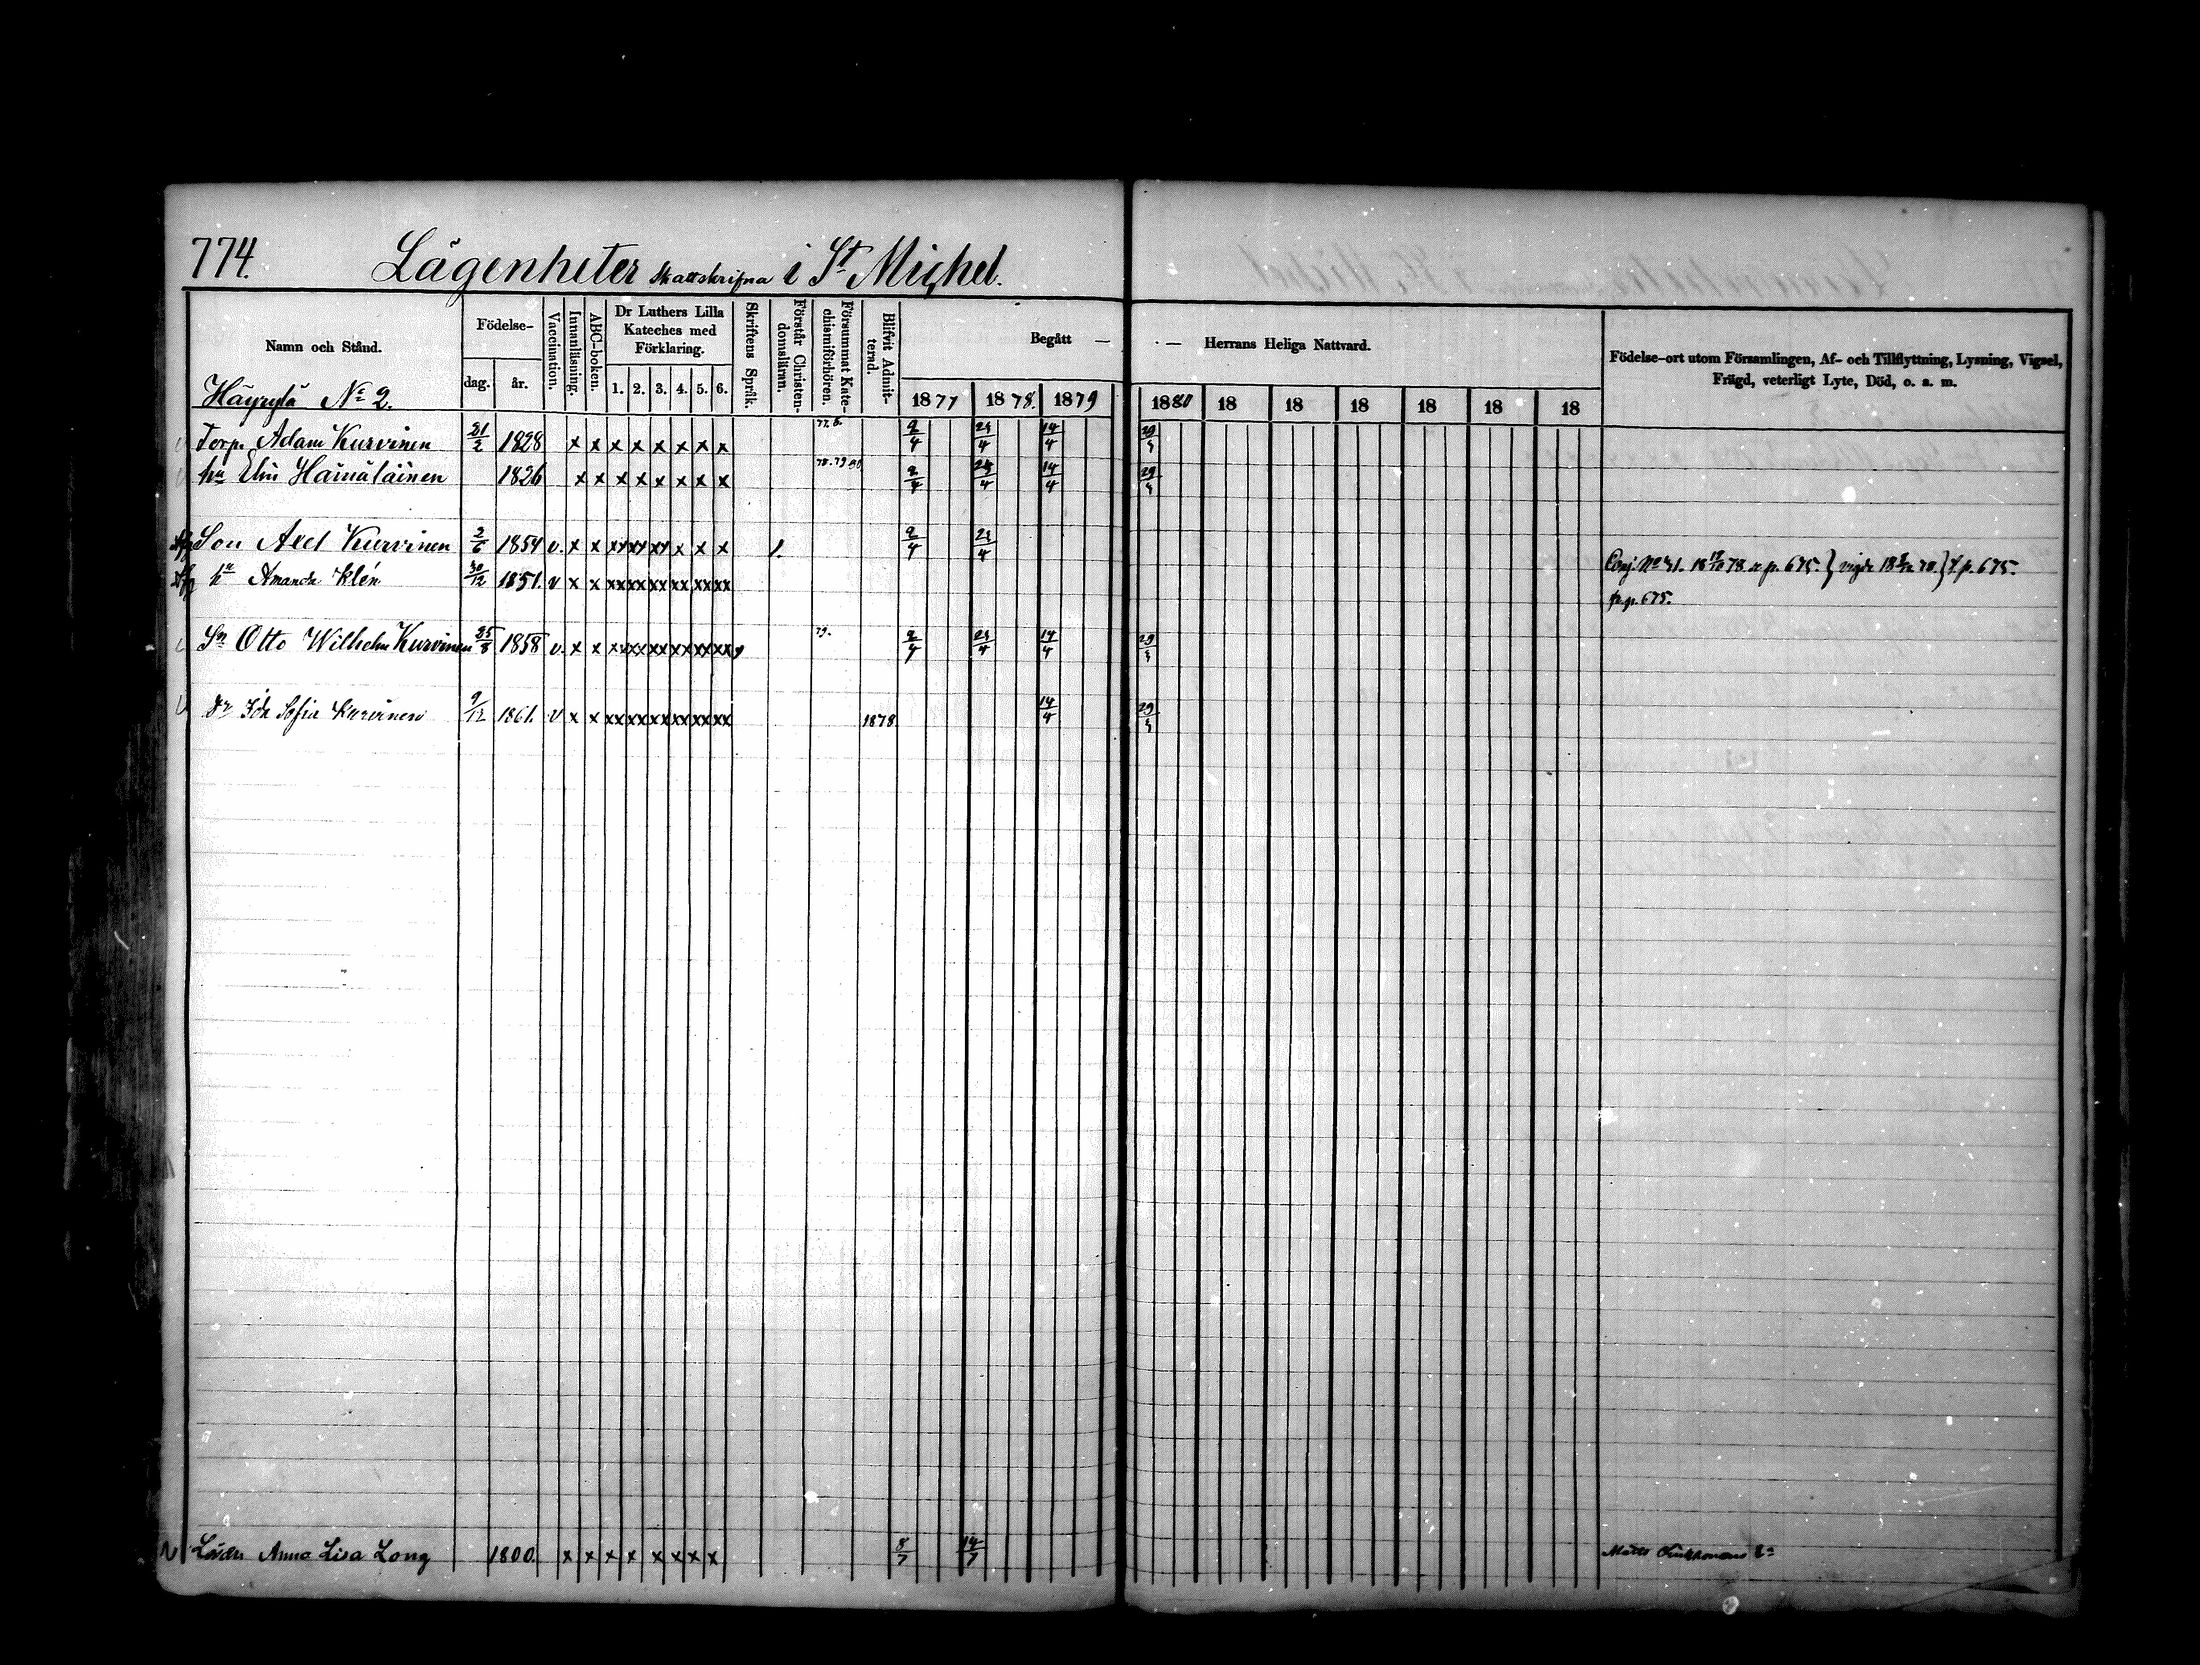 774.
Lägenheter skattskrifna i St Michel.
Namn och Stånd.
Födelse-
dag.
år.
Vaccination.
Innanläsning.
ABC-boken.
Dr Luthers Lilla
Kateches med
Förklaring.
1. 2. 3. 4. 5. 6.
Skriftens Språk.
Förstår Christen-
domsläran.
Försummat Kate-
chismiförhören.
Blifvit Admit-
terad.
Begått — — Herrans Heliga Nattvard.
1877 1878. 1879 1880 18 18 18 18 18 18
Födelse-ort utom Församlingen, Af- och Tillflyttning, Lysning, Vigsel,
Frägd, veterligt Lyte, Död, o. a. m.
Häyrylä No 2.
Torp. Adam Kurvinen 21/2 1828 x x x x x x x x 2/4 14/4
hu Hämäläinen 1826 x x x x x x x x 78. 79 80 14/4
Son Axel Kurvinen 2/6 1854 v. x x xx xx xx x x x 1.
hu Amanda Klén 30/12 1851. v x x xx xx xx xx xx xx
p. 675.
Sn Otto Wilhelm Kurvinen 25/8 1858 v. x x xx xx xx xx xx xx 79. 14/4
dr Ida Sofia Kurvinen 9/12 1861. v x x xx xx xx xx xx xx 1878 14/4
Anna Lisa Long 1800. x x x x x x x x 8/7 14/7